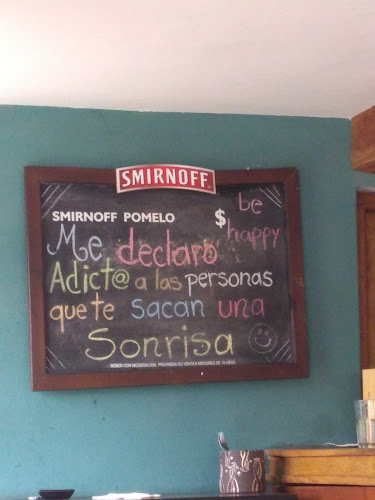 SMIRNOFF
SMIRNOFF POMELO
$
be
happy
Me declaro
Adict@ a las personas
que te sacan una
Sonrisa
BEBER CON MODERACIÓN. PROHIBIDA SU VENTA A MENORES DE 18 AÑOS.